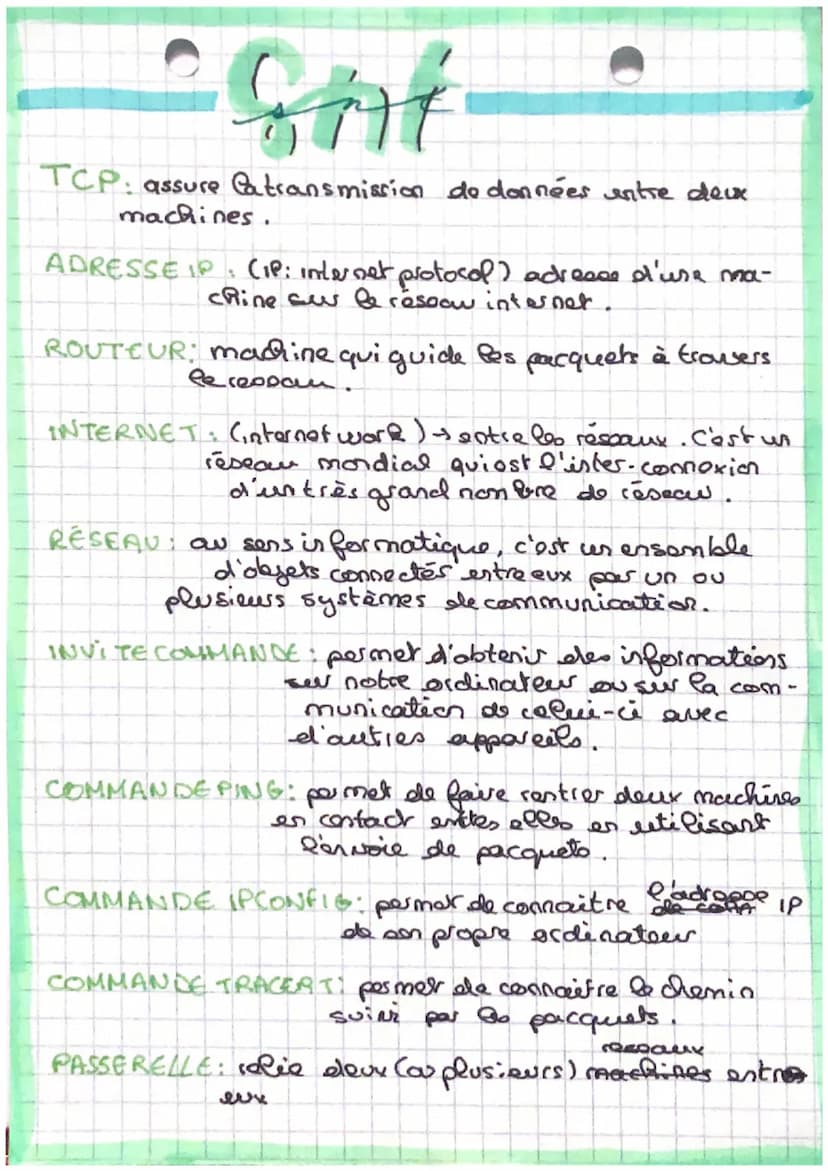 Snt
TCP: assure la transmission de données entre deux
machines.
ADRESSE IP: (IP: internet protocol) adresse d'une ma-
chine sur le réseau internet.
ROUTEUR: machine qui guide les pacquets à travers
le reseau.
INTERNET: (internet work) → entre les réseaux. C'est un
réseau mondial qui est l'inter-connexion
d'un très grand nombre de réseau.
RÉSEAU: au sens informatique, c'est un ensemble
d'objets connectés entre eux par un ou
plusieurs systèmes de communication.
INVITE COMMANDE: permet d'obtenir des informations
sur notre ordinateur ou sur la com-
munication de celui-ci avec
d'autres appareils.
COMMANDE PING: permet de faire rentrer deux machines
en contact entres elles en utilisant
l'envoie de pacquets.
COMMANDE IPCONFIG: permet de connaitre l'adresse IP
de son propre ordinateur
COMMANDE TRACERT: permet de connaitre le chemin
suivi par les pacquets.
reseaux
PASSERELLE: relie deux (ou plusieurs) machines entre
eux